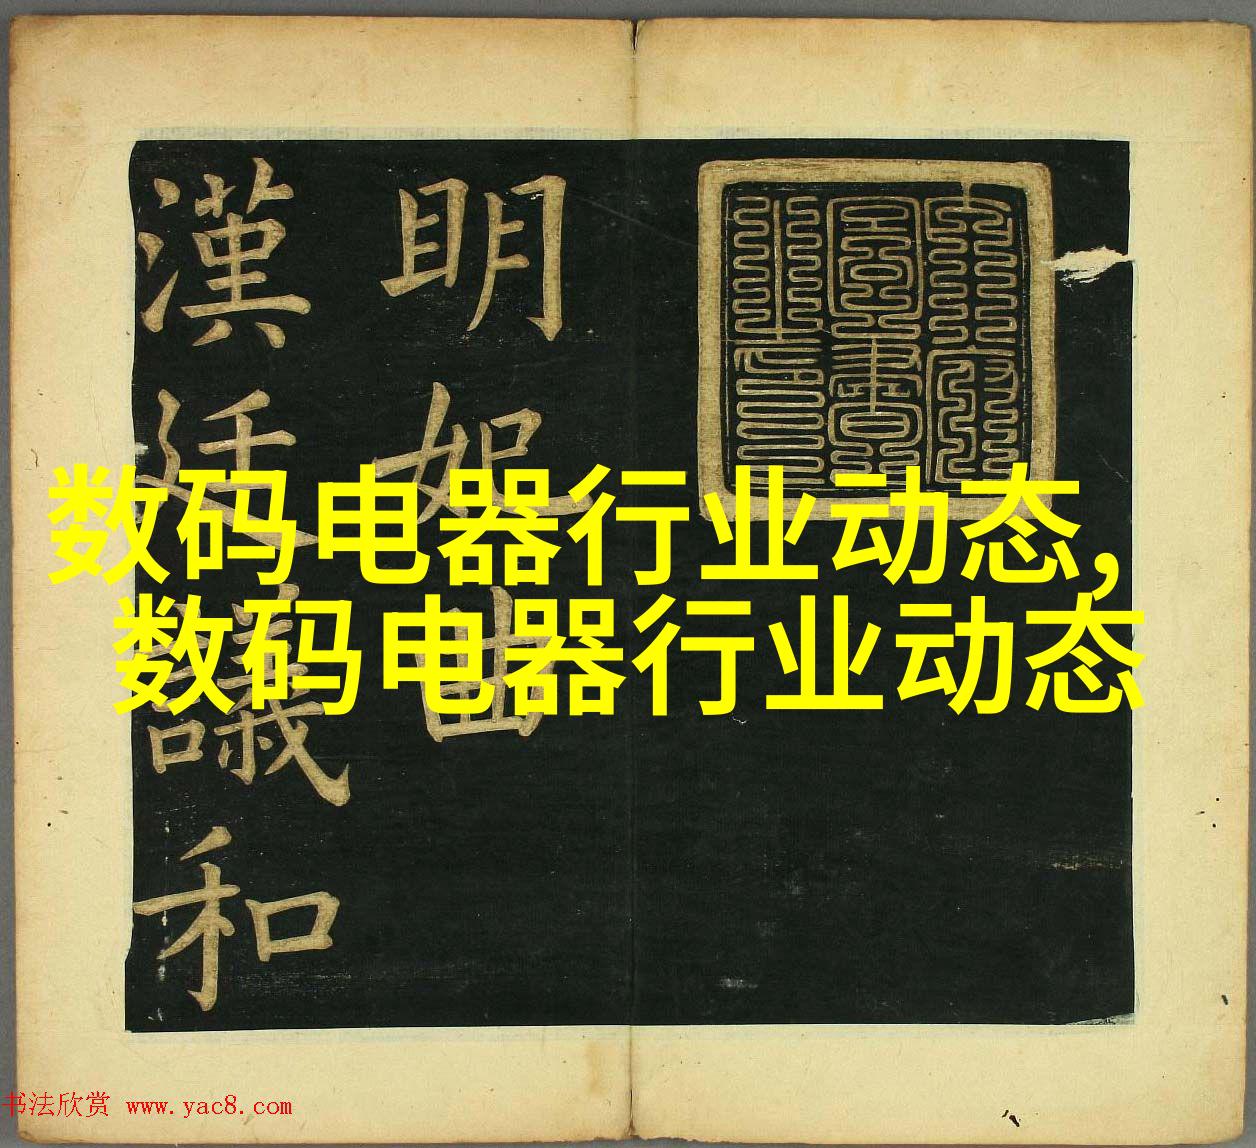 明妃曲
漢廷議和
数码电器行业动态,
数码电器行业动态
书法欣赏 www.yac8.com